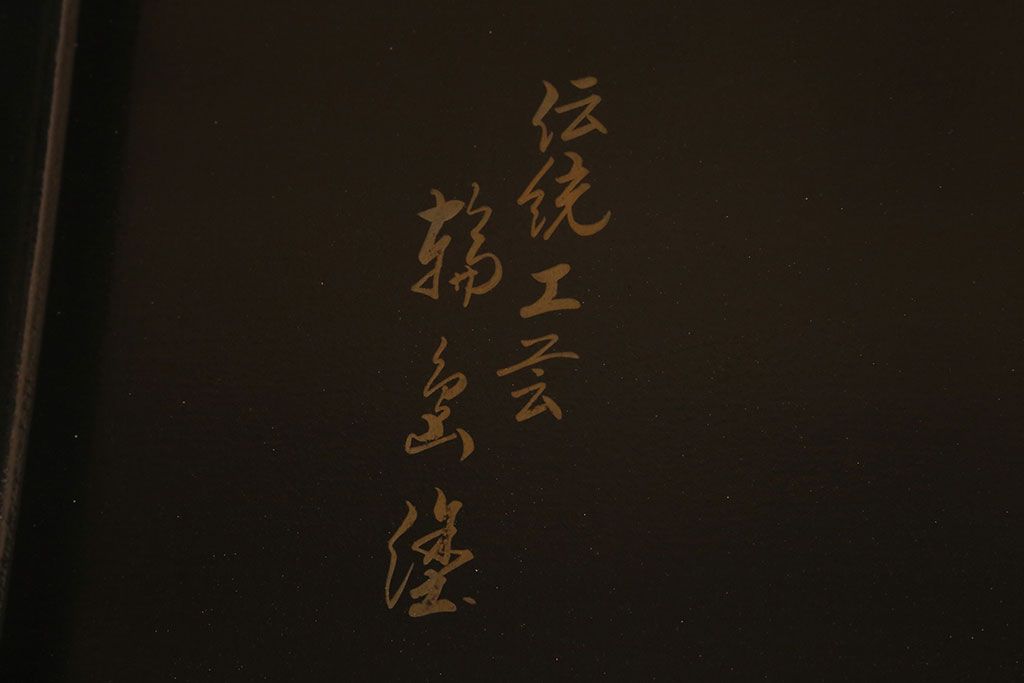 伝統工芸
輪島塗